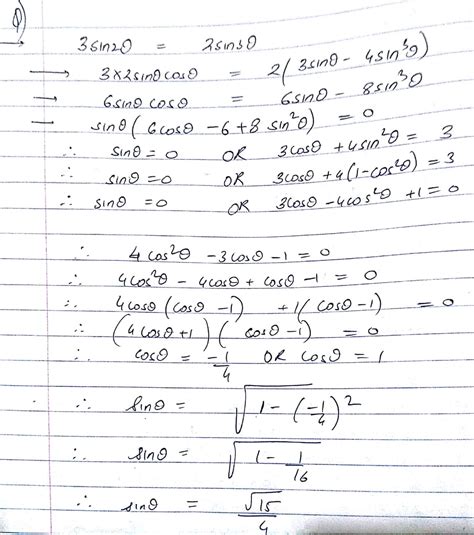 Q)
3sin2θ = 2sin3θ
→ 3×2sinθcosθ = 2(3sinθ - 4sin³θ)
→ 6sinθcosθ = 6sinθ - 8sin³θ
→ sinθ(6cosθ - 6 + 8sin²θ) = 0
∴ sinθ = 0 OR 3cosθ + 4sin²θ = 3
∴ sinθ = 0 OR 3cosθ + 4(1-cos²θ) = 3
∴ sinθ = 0 OR 3cosθ - 4cos²θ + 1 = 0
∴ 4cos²θ - 3cosθ - 1 = 0
∴ 4cos²θ - 4cosθ + cosθ - 1 = 0
∴ 4cosθ(cosθ - 1) + 1(cosθ - 1) = 0
∴ (4cosθ + 1)(cosθ - 1) = 0
∴ cosθ = -1/4 OR cosθ = 1
∴ sinθ = √(1 - (-1/4)²)
∴ sinθ = √(1 - 1/16)
∴ sinθ = √15/4